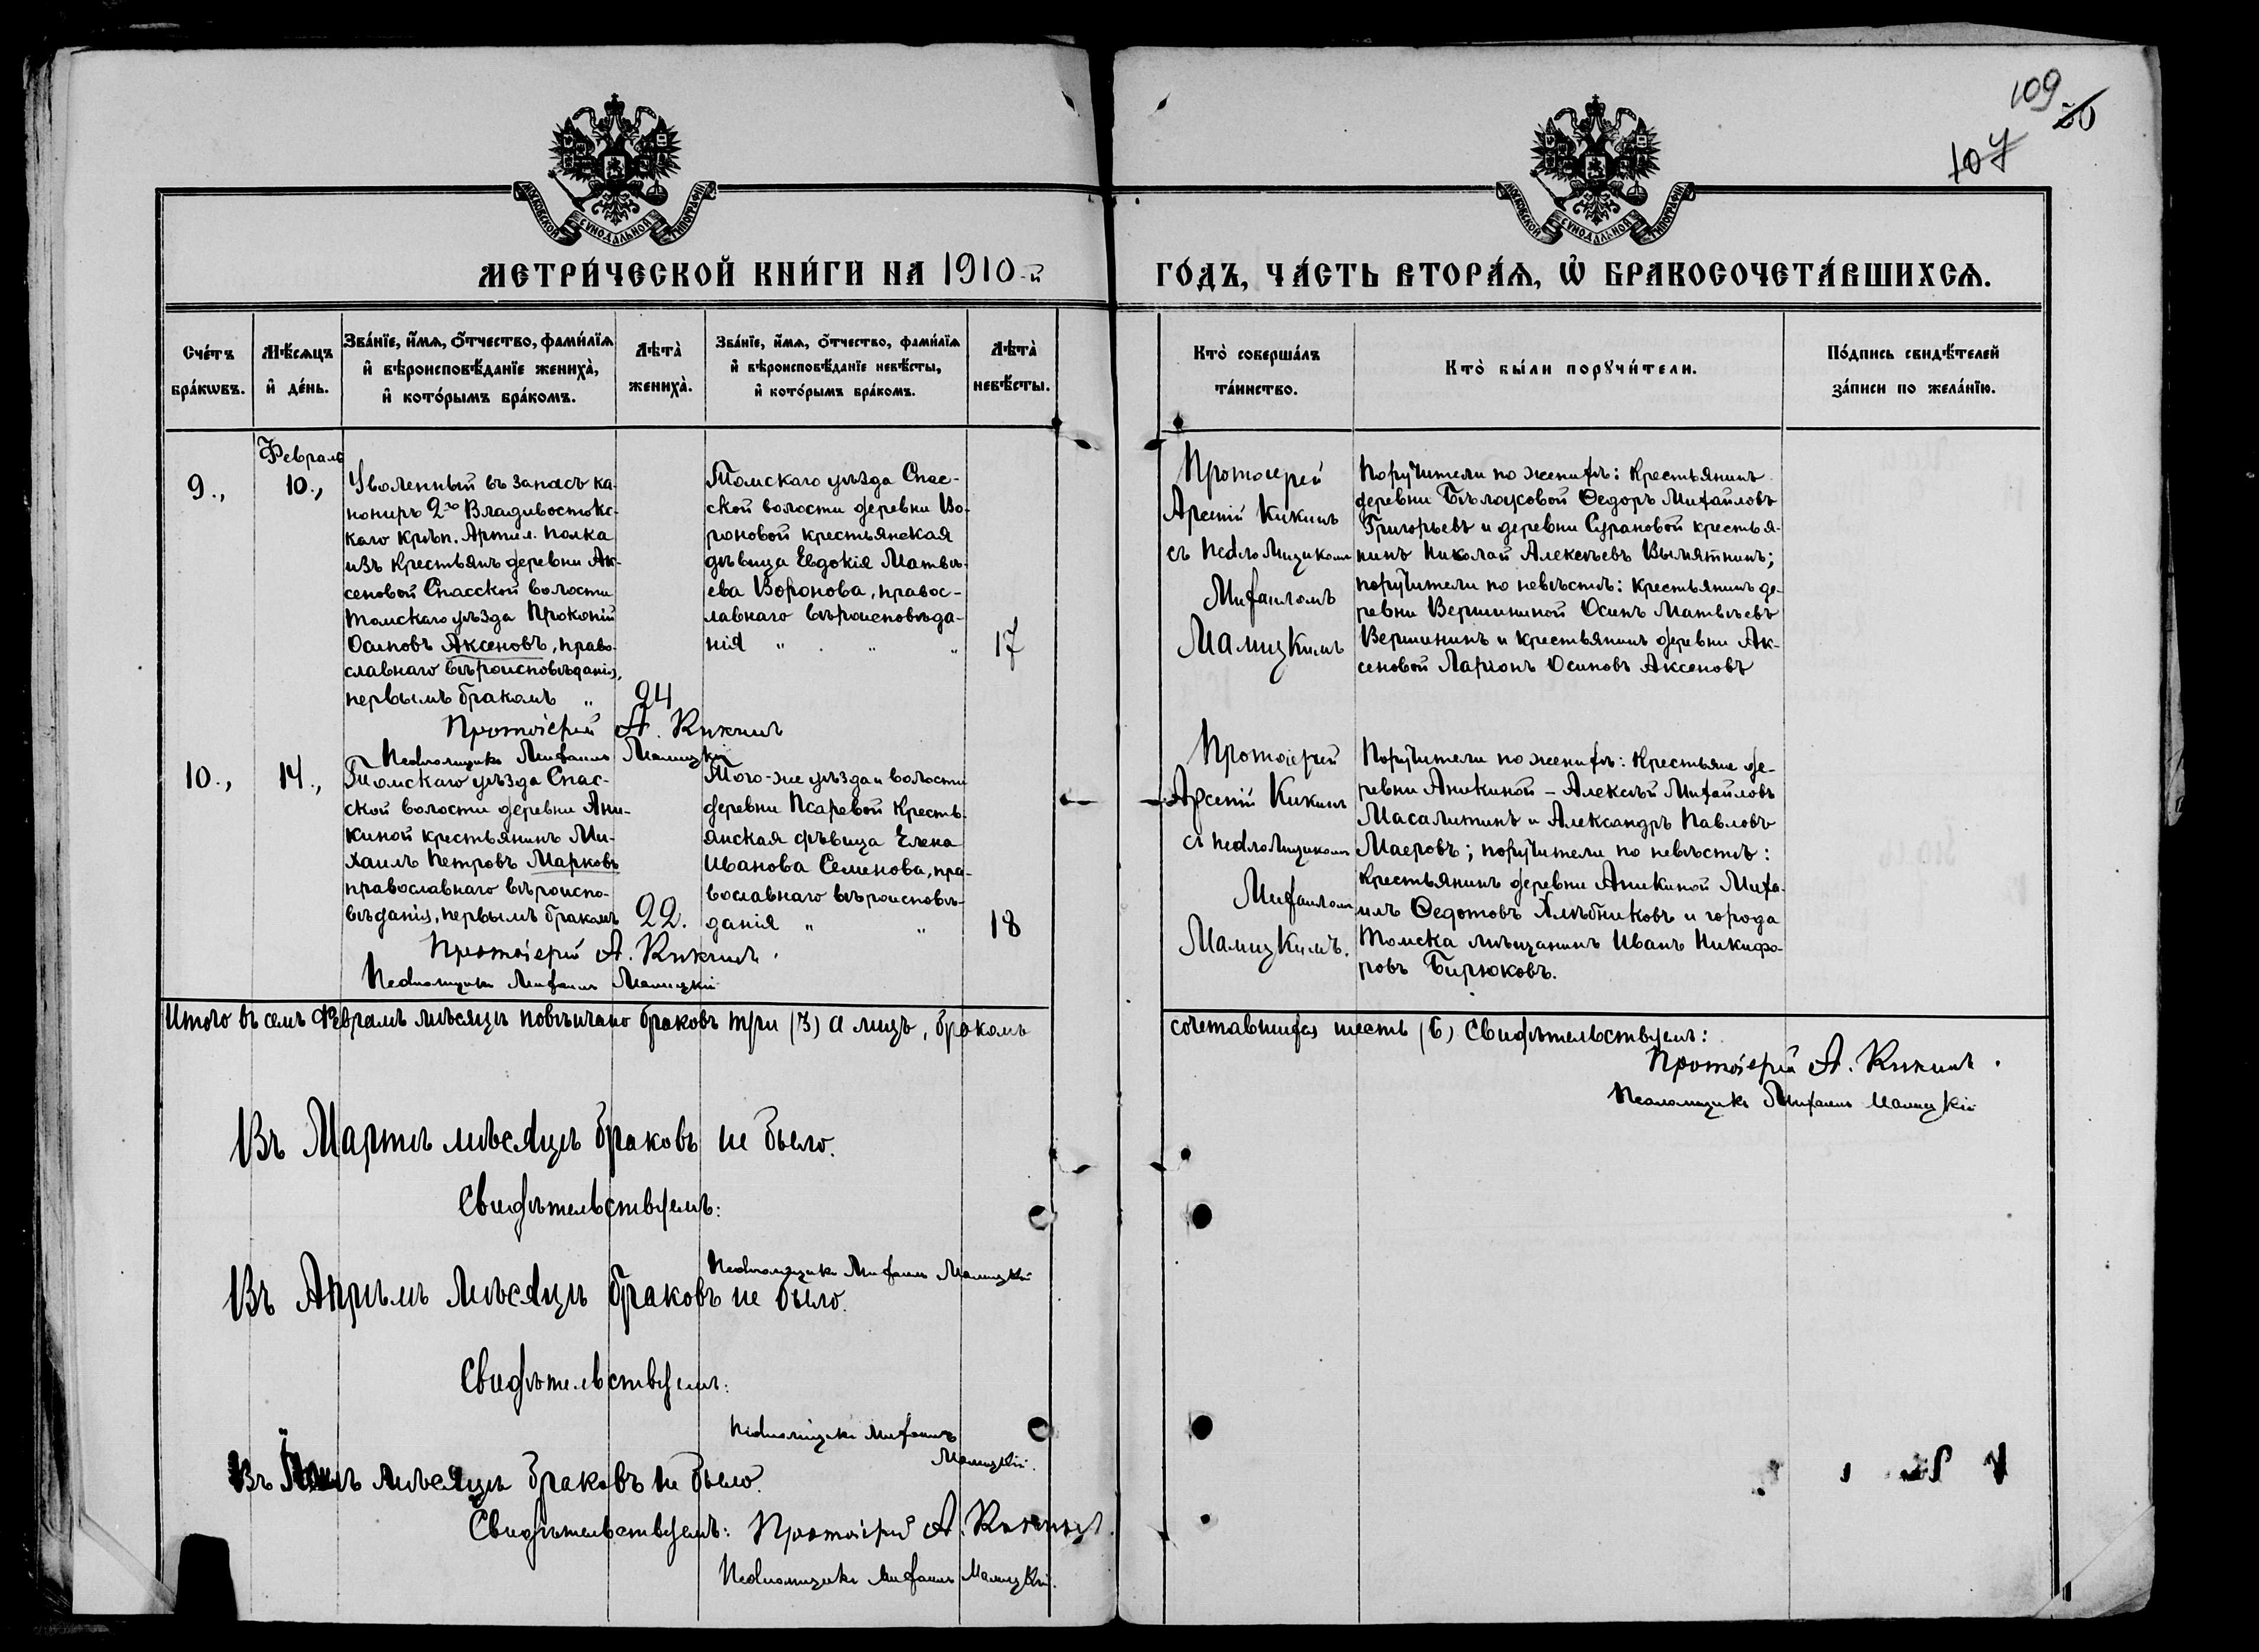 109
50
107
МОСКОВСКОЙ СѴНОДАЛЬНОЙ ТИПОГРАФІИ
МОСКОВСКОЙ СѴНОДАЛЬНОЙ ТИПОГРАФІИ
МЕТРИ́ЧЕСКОЙ КНИ́ГИ НА 1910-й
ГО́ДЪ, ЧА́СТЬ ВТОРА́Ѧ, Ѽ БРАКОСОЧЕТА́ВШИХСѦ.
Сче́тъ
бра́кѡвъ.
Мѣ́сѧцъ
и҆ де́нь.
Зва́нїе, и҆́мѧ, ѻ҆́тчество, фами́лїѧ
и҆ вѣроисповѣ́данїе жениха̀,
и҆ кото́рымъ бра́комъ.
Лѣта̀
жениха̀.
Зва́нїе, и҆́мѧ, ѻ҆́тчество, фами́лїѧ
и҆ вѣроисповѣ́данїе невѣ́сты,
и҆ кото́рымъ бра́комъ.
Лѣта̀
невѣ́сты.
Кто̀ соверша́лъ
та́инство.
Кто̀ бы́ли порꙋчи́тели.
По́дпись свидѣ́телей
за́писи по жела́нїю.
9.,
Февраль
10.,
Уволенный въ запасъ ка-
нониръ 2го Владивостокс-
каго крѣп. Артил. полка
изъ крестьянъ деревни Ак-
сеновой Спасской волости
Томскаго уѣзда Прокопій
Осиповъ Аксеновъ, право-
славнаго вѣроисповѣданія,
первымъ бракомъ „
24
Томскаго уѣзда Спас-
ской волости деревни Во-
роновой крестьянская
дѣвица Евдокія Матвѣ-
ева Воронова, правос-
лавнаго вѣроисповѣда-
нія „ „ „
17
Протоіерей А. Кикинъ
Псаломщикъ Михаилъ Малицкій
Протоіерей
Арсеній Кикинъ
съ псаломщикомъ
Михаиломъ
Малицкимъ
Поручители по женихѣ: крестьянинъ
деревни Бѣлоусовой Ѳедоръ Михайловъ
Григорьевъ и деревни Сурановой крестья-
нинъ Николай Алексѣевъ Вымятнинъ;
поручители по невѣстѣ: крестьянинъ де-
ревни Вершининой Осипъ Матвѣевъ
Вершининъ и крестьянинъ деревни Ак-
сеновой Ларіонъ Осиповъ Аксеновъ
10.,
14.,
Томскаго уѣзда Спас-
ской волости деревни Ани-
киной крестьянинъ Ми-
хаилъ Петровъ Марковъ
православнаго вѣроиспо-
вѣданія, первымъ бракомъ
22.
Того-же уѣзда и волости
деревни Псаревой кресть-
янская дѣвица Елена
Иванова Семенова, пра-
вославнаго вѣроисповѣ-
данія „ „
18
Протоіерей А. Кикинъ.
Псаломщикъ Михаилъ Малицкій
Протоіерей
Арсеній Кикинъ
съ псаломщикомъ
Михаиломъ
Малицкимъ.
Поручители по женихѣ: крестьяне де-
ревни Аникиной – Алексѣй Михайловъ
Масалитинъ и Александръ Павловъ
Маеровъ; поручители по невѣстѣ:
крестьянинъ деревни Аникиной Миха-
илъ Ѳедотовъ Хлѣбниковъ и города
Томска мѣщанинъ Иванъ Никифо-
ровъ Бирюковъ.
Итого въ семъ Февралѣ мѣсяцѣ повѣнчано браковъ три (3) а лицъ, бракомъ
сочетавшихся шесть (6) Свидѣтельствуемъ:
Протоіерей А. Кикинъ.
Псаломщикъ Михаилъ Малицкій
Въ Мартѣ мѣсяцѣ браковъ не было.
Свидѣтельствуемъ:
Псаломщикъ Михаилъ Малицкій
Въ Апрѣлѣ мѣсяцѣ браковъ не было.
Свидѣтельствуемъ:
Псаломщикъ Михаилъ
Малицкій.
Въ мѣсяцѣ браковъ не было.
Свидѣтельствуемъ: Протоіерей А. Кикинъ.
Псаломщикъ Михаилъ Малицкій.